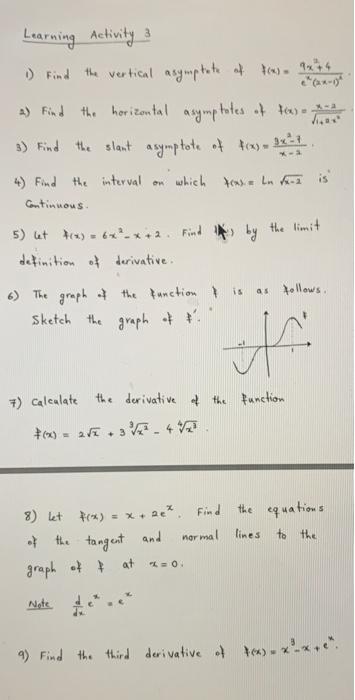 Learning Activity 3
1) Find the vertical asymptote of f(x) = (9x²+4)/(eˣ(2x-1)²).
2) Find the horizontal asymptotes of f(x) = (x-2)/√(1+2x²)
3) Find the slant asymptote of f(x) = (3x²-7)/(x-2).
4) Find the interval on which f(x) = Ln √x-2 is
Continuous.
5) Let f(x) = 6x²-x+2. Find by the limit
definition of derivative.
6) The graph of the function f is as follows.
Sketch the graph of f'.
f
-1 1
7) Calculate the derivative of the function
f(x) = 2√x + 3 ∛x² - 4 ∜x³.
8) Let f(x) = x + 2eˣ. Find the equations
of the tangent and normal lines to the
graph of f at x=0.
Note d/dx eˣ = eˣ
9) Find the third derivative of f(x) = x³-x+eˣ.